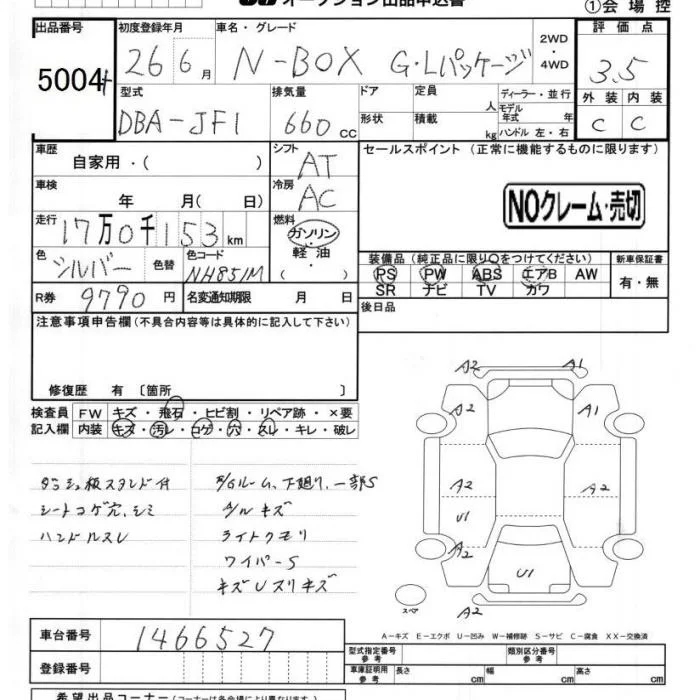 オークション出品申込書
①会場控
出品番号
5004
初度登録年月
26 6月
車名・グレード
N-BOX G・Lパッケージ
2WD
・
4WD
評価点
3.5
外装 内装
C C
型式
DBA-JF1
排気量
660 cc
ドア
形状
定員 人
積載 kg
ディーラー・並行
モデル年式 年
ハンドル 左・右
車歴
自家用・( )
シフト
AT
セールスポイント(正常に機能するものに限ります)
車検
年 月( 日)
冷房
AC
NOクレーム・売切
走行
17万0千153km
燃料
ガソリン
軽油
( )
色
シルバー
色替
色コード
NH851M
装備品(純正品に限り○をつけてください)
新車保証書
PS PW ABS エアB AW
SR ナビ TV カワ
有・無
R券 9790円
名変通知期限 月 日
後日品
注意事項申告欄(不具合内容等は具体的に記入して下さい)
修復歴 有〔箇所 〕
検査員
記入欄
FW キズ・飛石・ヒビ割・リペア跡・×要
内装 キズ・汚レ・コゲ・穴・スレ・キレ・破レ
ダッシュ板スタンド付
シートコゲ穴、シミ
ハンドルスレ
R/Gルーム、下廻り、一部S
A/Wキズ
ライトクモリ
ワイパーS
キズUスリキズ
A2 A1
A2 A1
A2 A2
U1
A2
U1
スペア
A2
A-キズ E-エクボ U-凹み W-補修跡 S-サビ C-腐食 XX-交換済
車台番号
1466527
登録番号
型式指定番号
参考
類別区分番号
参考
車庫証明用
参考
長さ cm 幅 cm 高さ cm
希望出品コーナー(コーナーは各会場により異なります。)